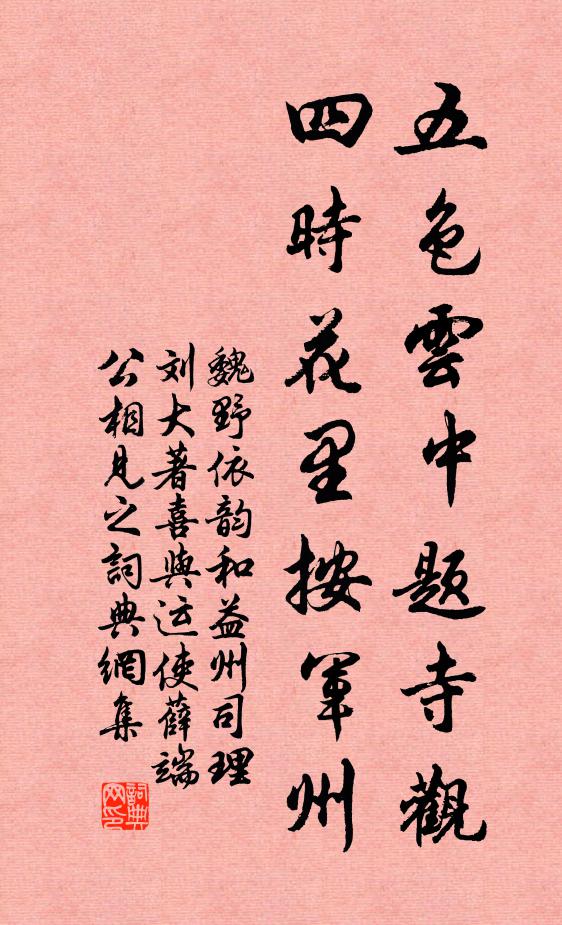 五色雲中题寺觀
四時花里按軍州
魏野依韵和益州司理
刘大著喜與运使薛端
公相見之詞典網集
詞典网印